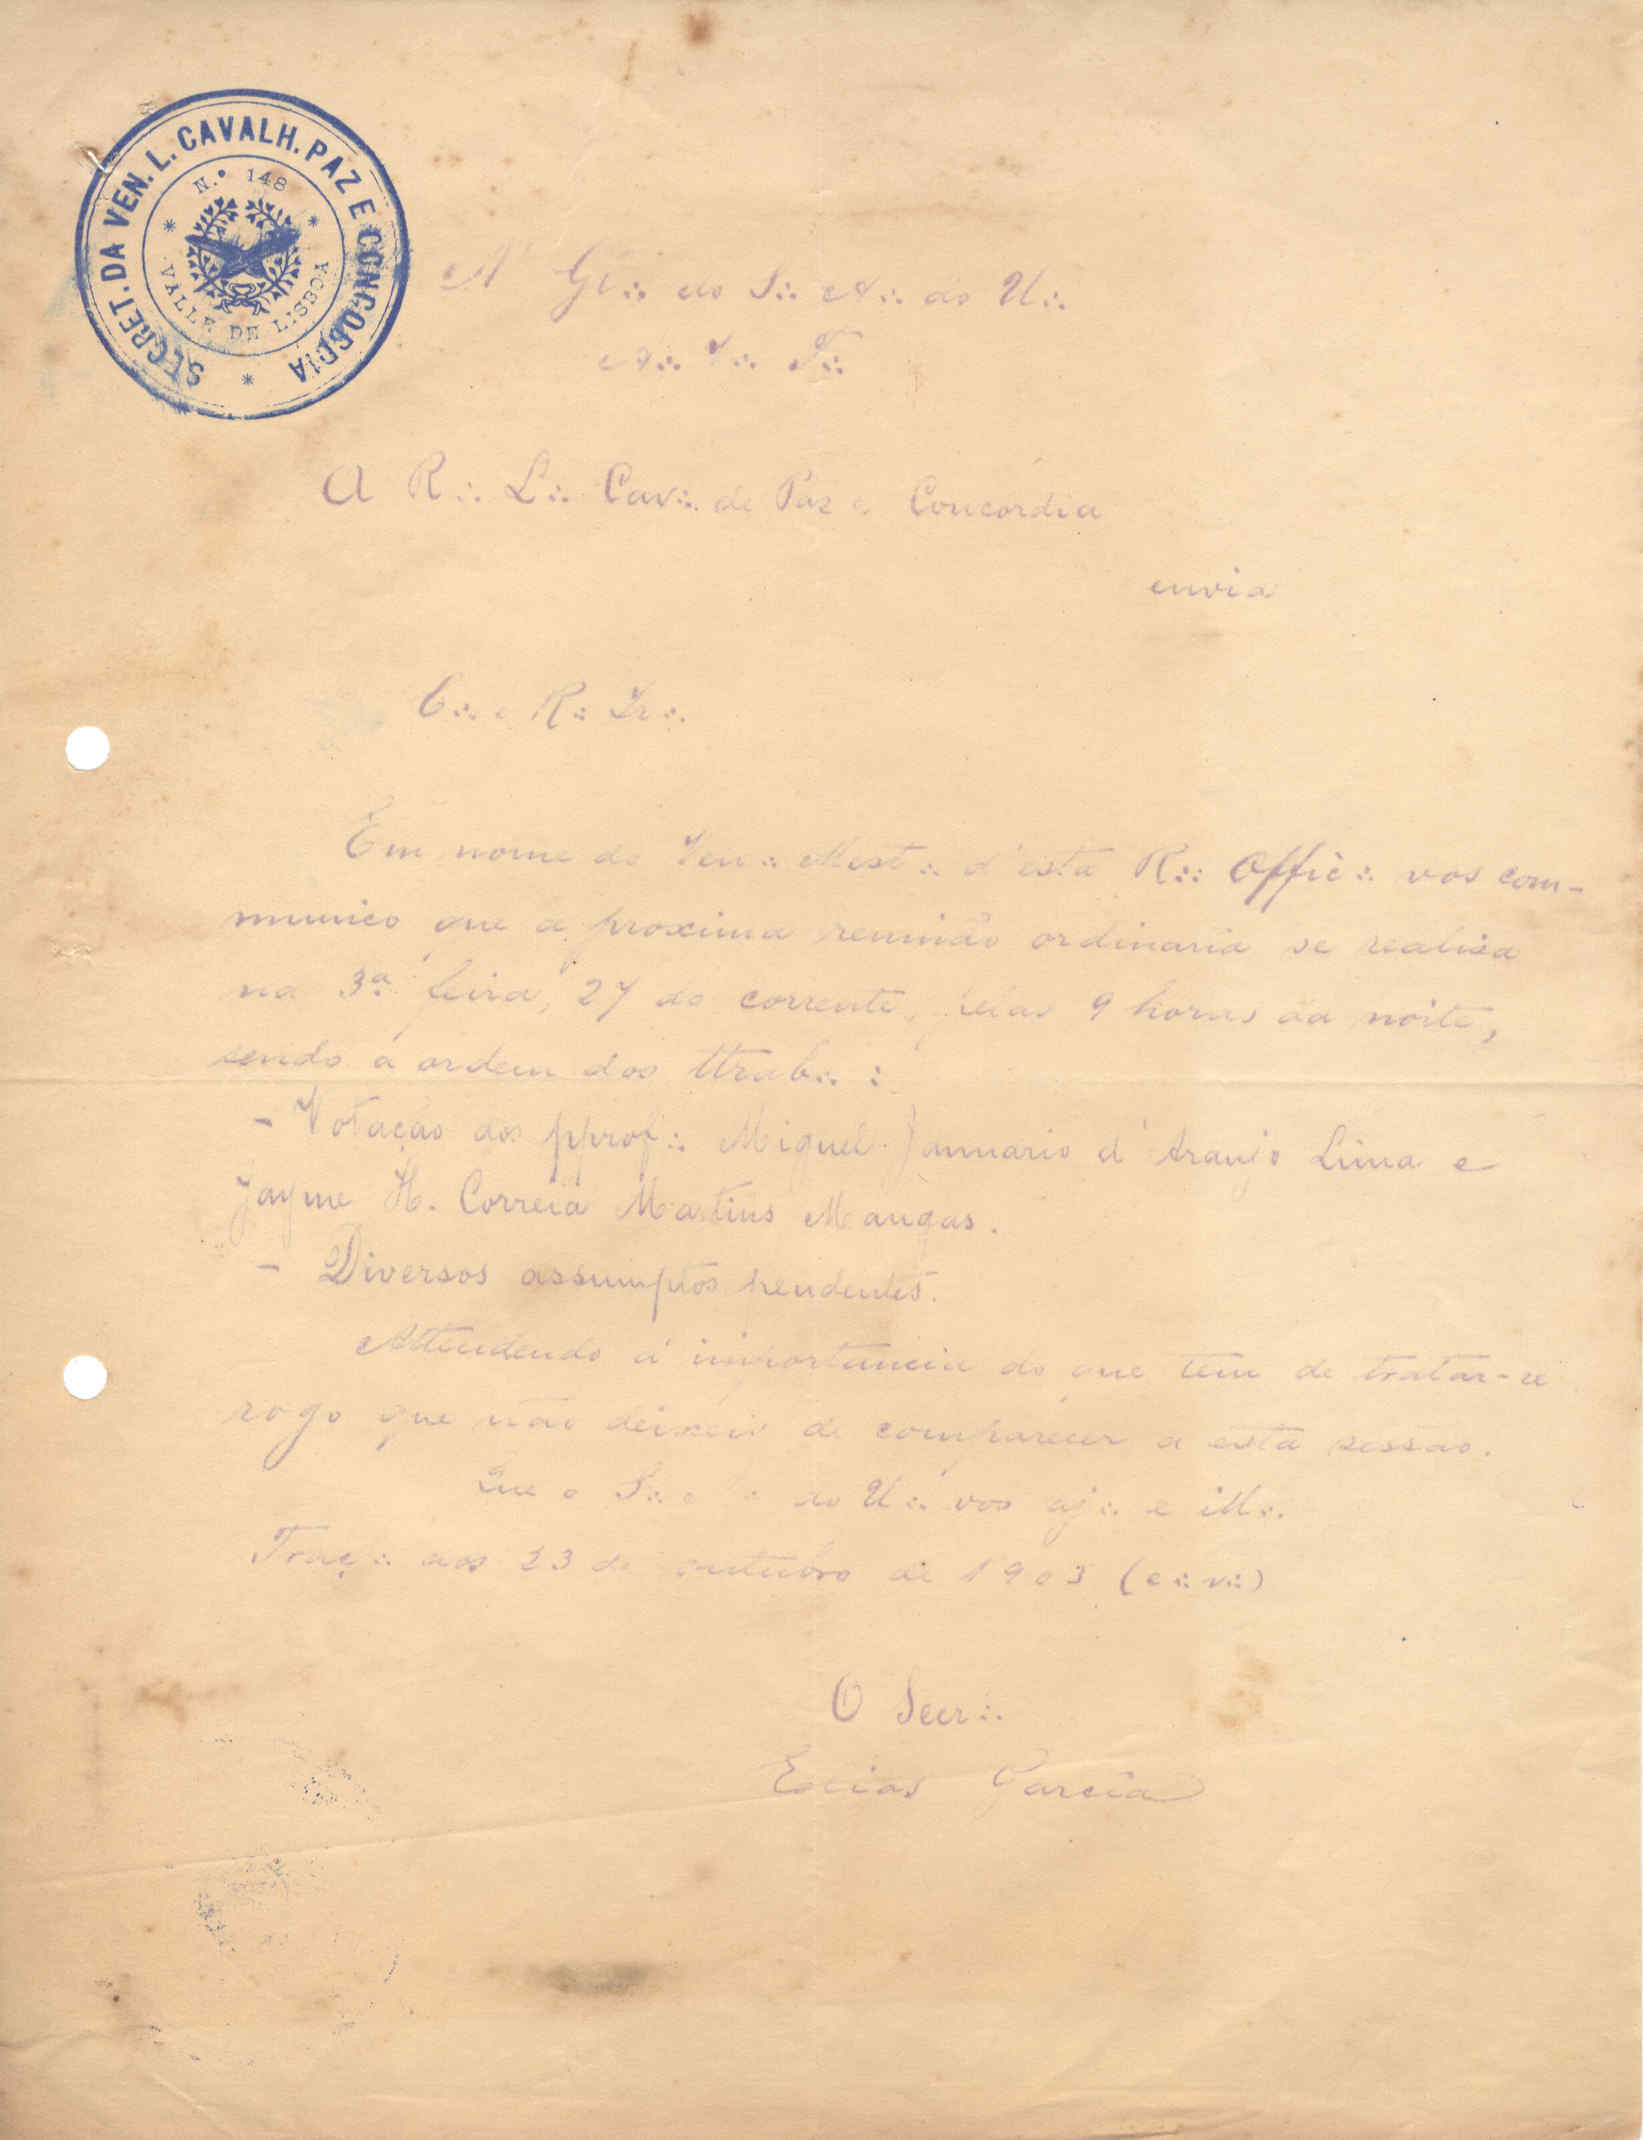 SECRET. DA VEN. L. CAVALH. PAZ E CONCORDIA
N.º 148
VALLE DE LISBOA
A' Gl∴ do S∴ A∴ do U∴
A∴ V∴ T∴
A R∴ L∴ Cav∴ de Paz e Concordia
envia
C∴ e R∴ Ir∴
Em nome do Ven∴ Mest∴ d'esta R∴ Offic∴ vos com-
munico que a proxima reunião ordinaria se realisa
na 3ª feira, 27 do corrente, pelas 9 horas da noite,
sendo a ordem dos ttrab∴:
- Votação dos pprof∴ Miguel Januario d'Araujo Lima e
Jayme H. Correia Martins Mangas.
- Diversos assumptos pendentes.
Attendendo á importancia do que tem de tratar-se
rogo que não deixeis de comparecer a esta sessão.
Que o S∴ A∴ do U∴ vos aj∴ e ill∴
Traç∴ aos 23 de outubro de 1903 (e∴ v∴)
O Secr∴
Elias Garcia